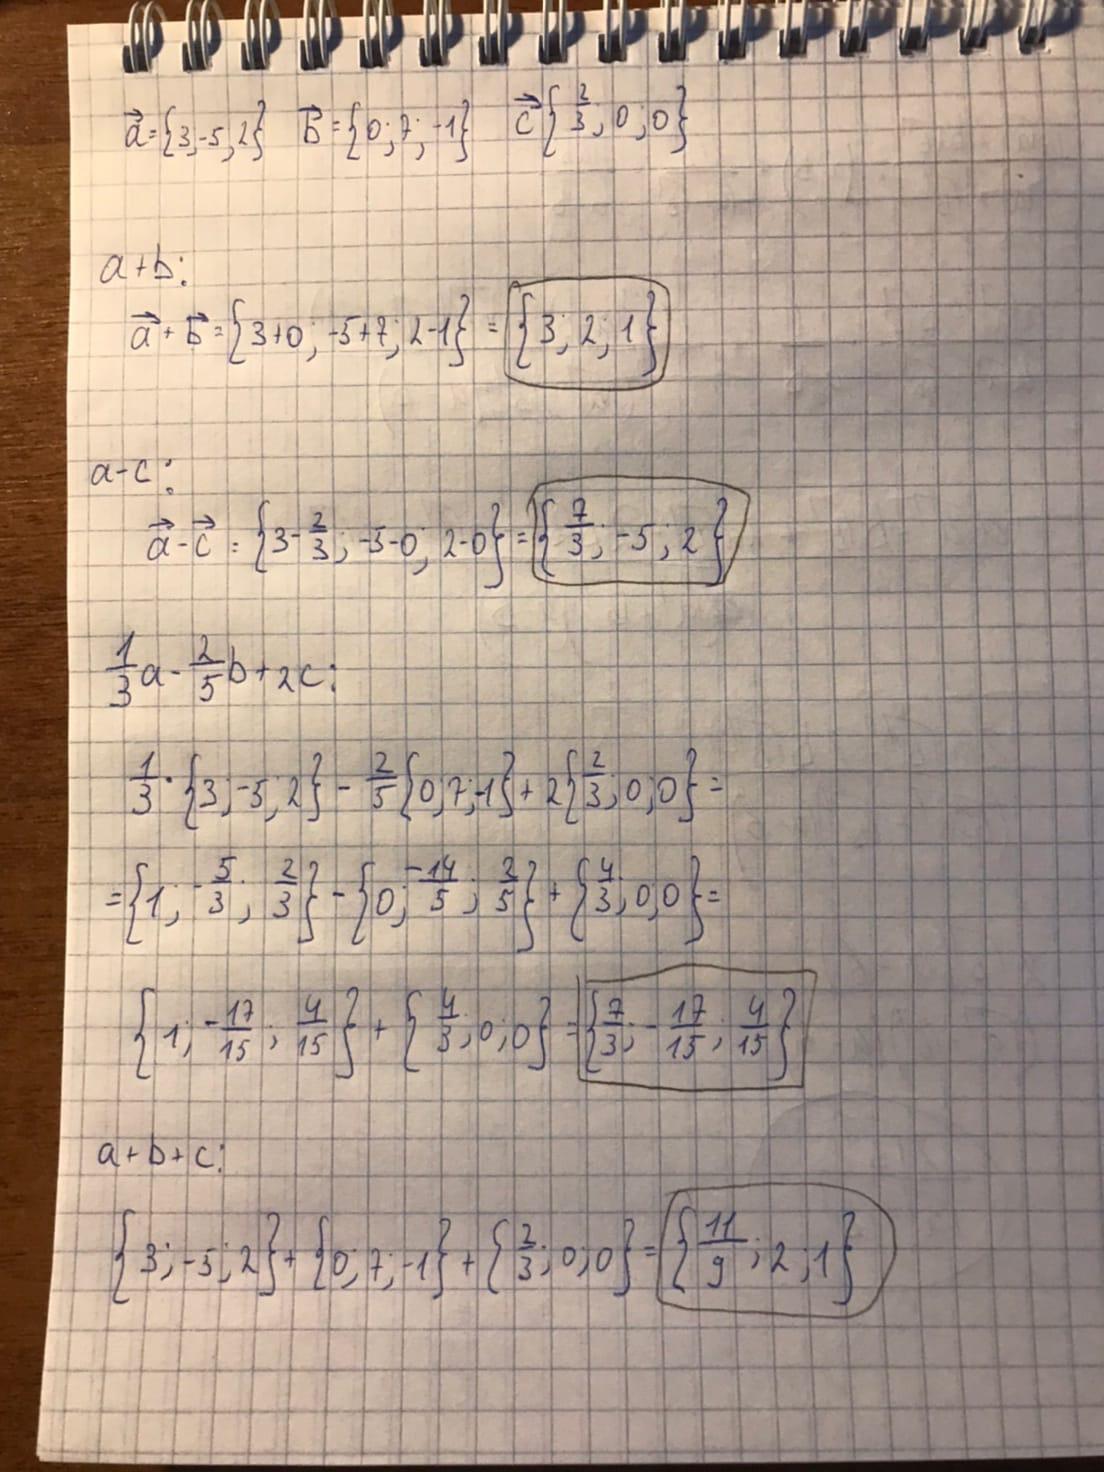 a⃗={3;-5;2} b⃗={0;7;-1} c⃗{2/3;0;0}
a+b:
a⃗+b⃗={3+0;-5+7;2-1}={3;2;1}
a-c:
a⃗-c⃗={3-2/3;-5-0;2-0}={7/3;-5;2}
1/3a-2/5b+2c:
1/3·{3;-5;2}-2/5{0;7;-1}+2{2/3;0;0}=
={1;-5/3;2/3}-{0;-14/5;2/5}+{4/3;0;0}=
{1;-17/15;4/15}+{4/3;0;0}={7/3;-17/15;4/15}
a+b+c:
{3;-5;2}+{0;7;-1}+{2/3;0;0}={11/9;2;1}